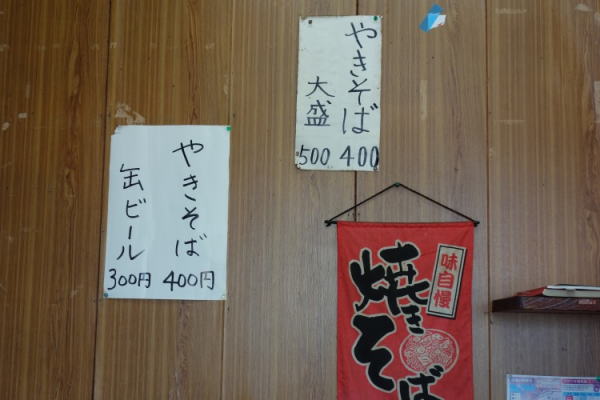 やきそば
400
大盛
500
やきそば
400円
缶ビール
300円
味自慢
焼きそば